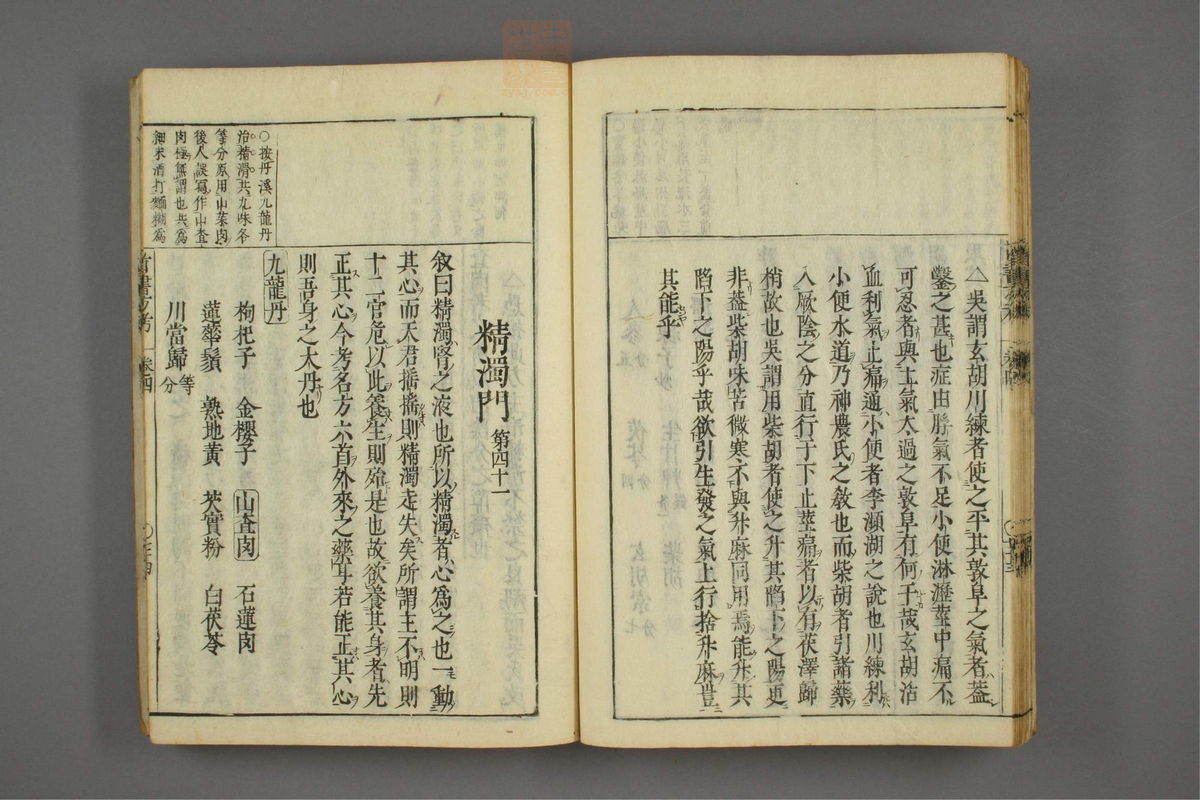 △吳謂玄胡川練者使之平其敦阜之氣者葢
鑿之甚也症由脬氣不足小便淋瀝莖中痛不
可忍者與土氣太過之敦阜有何干哉玄胡活
血利氣止痛通小便者李瀕湖之說也川練利
小便水道乃神農氏之敎也而柴胡者引諸藥
入厥陰之分直行于下止莖痛者以有茯澤歸
梢故也吳謂用柴胡者使之升其陷下之陽更
非葢柴胡味苦微寒不與升麻同用焉能升其
陷下之陽乎哉欲引生發之氣上行捨升麻豈
其能乎
精濁門第四十一
敘曰精濁腎之液也所以精濁者心爲之也一動
其心而天君搖搖則精濁走失矣所謂主不明則
十二官危以此養生則殆是也故欲養其身者先
正其心今考名方六首外來之藥耳若能正其心
則吾身之大丹也
九龍丹
枸杞子 金櫻子 山査肉 石蓮肉
蓮華鬚 熟地黃 芡實粉 白茯苓
川當歸等分
○按丹溪九龍丹
治精滑共九味各
等分原用山茱肉
後人誤寫作山査
肉極無謂也共爲
細末酒打麵糊爲
卷四